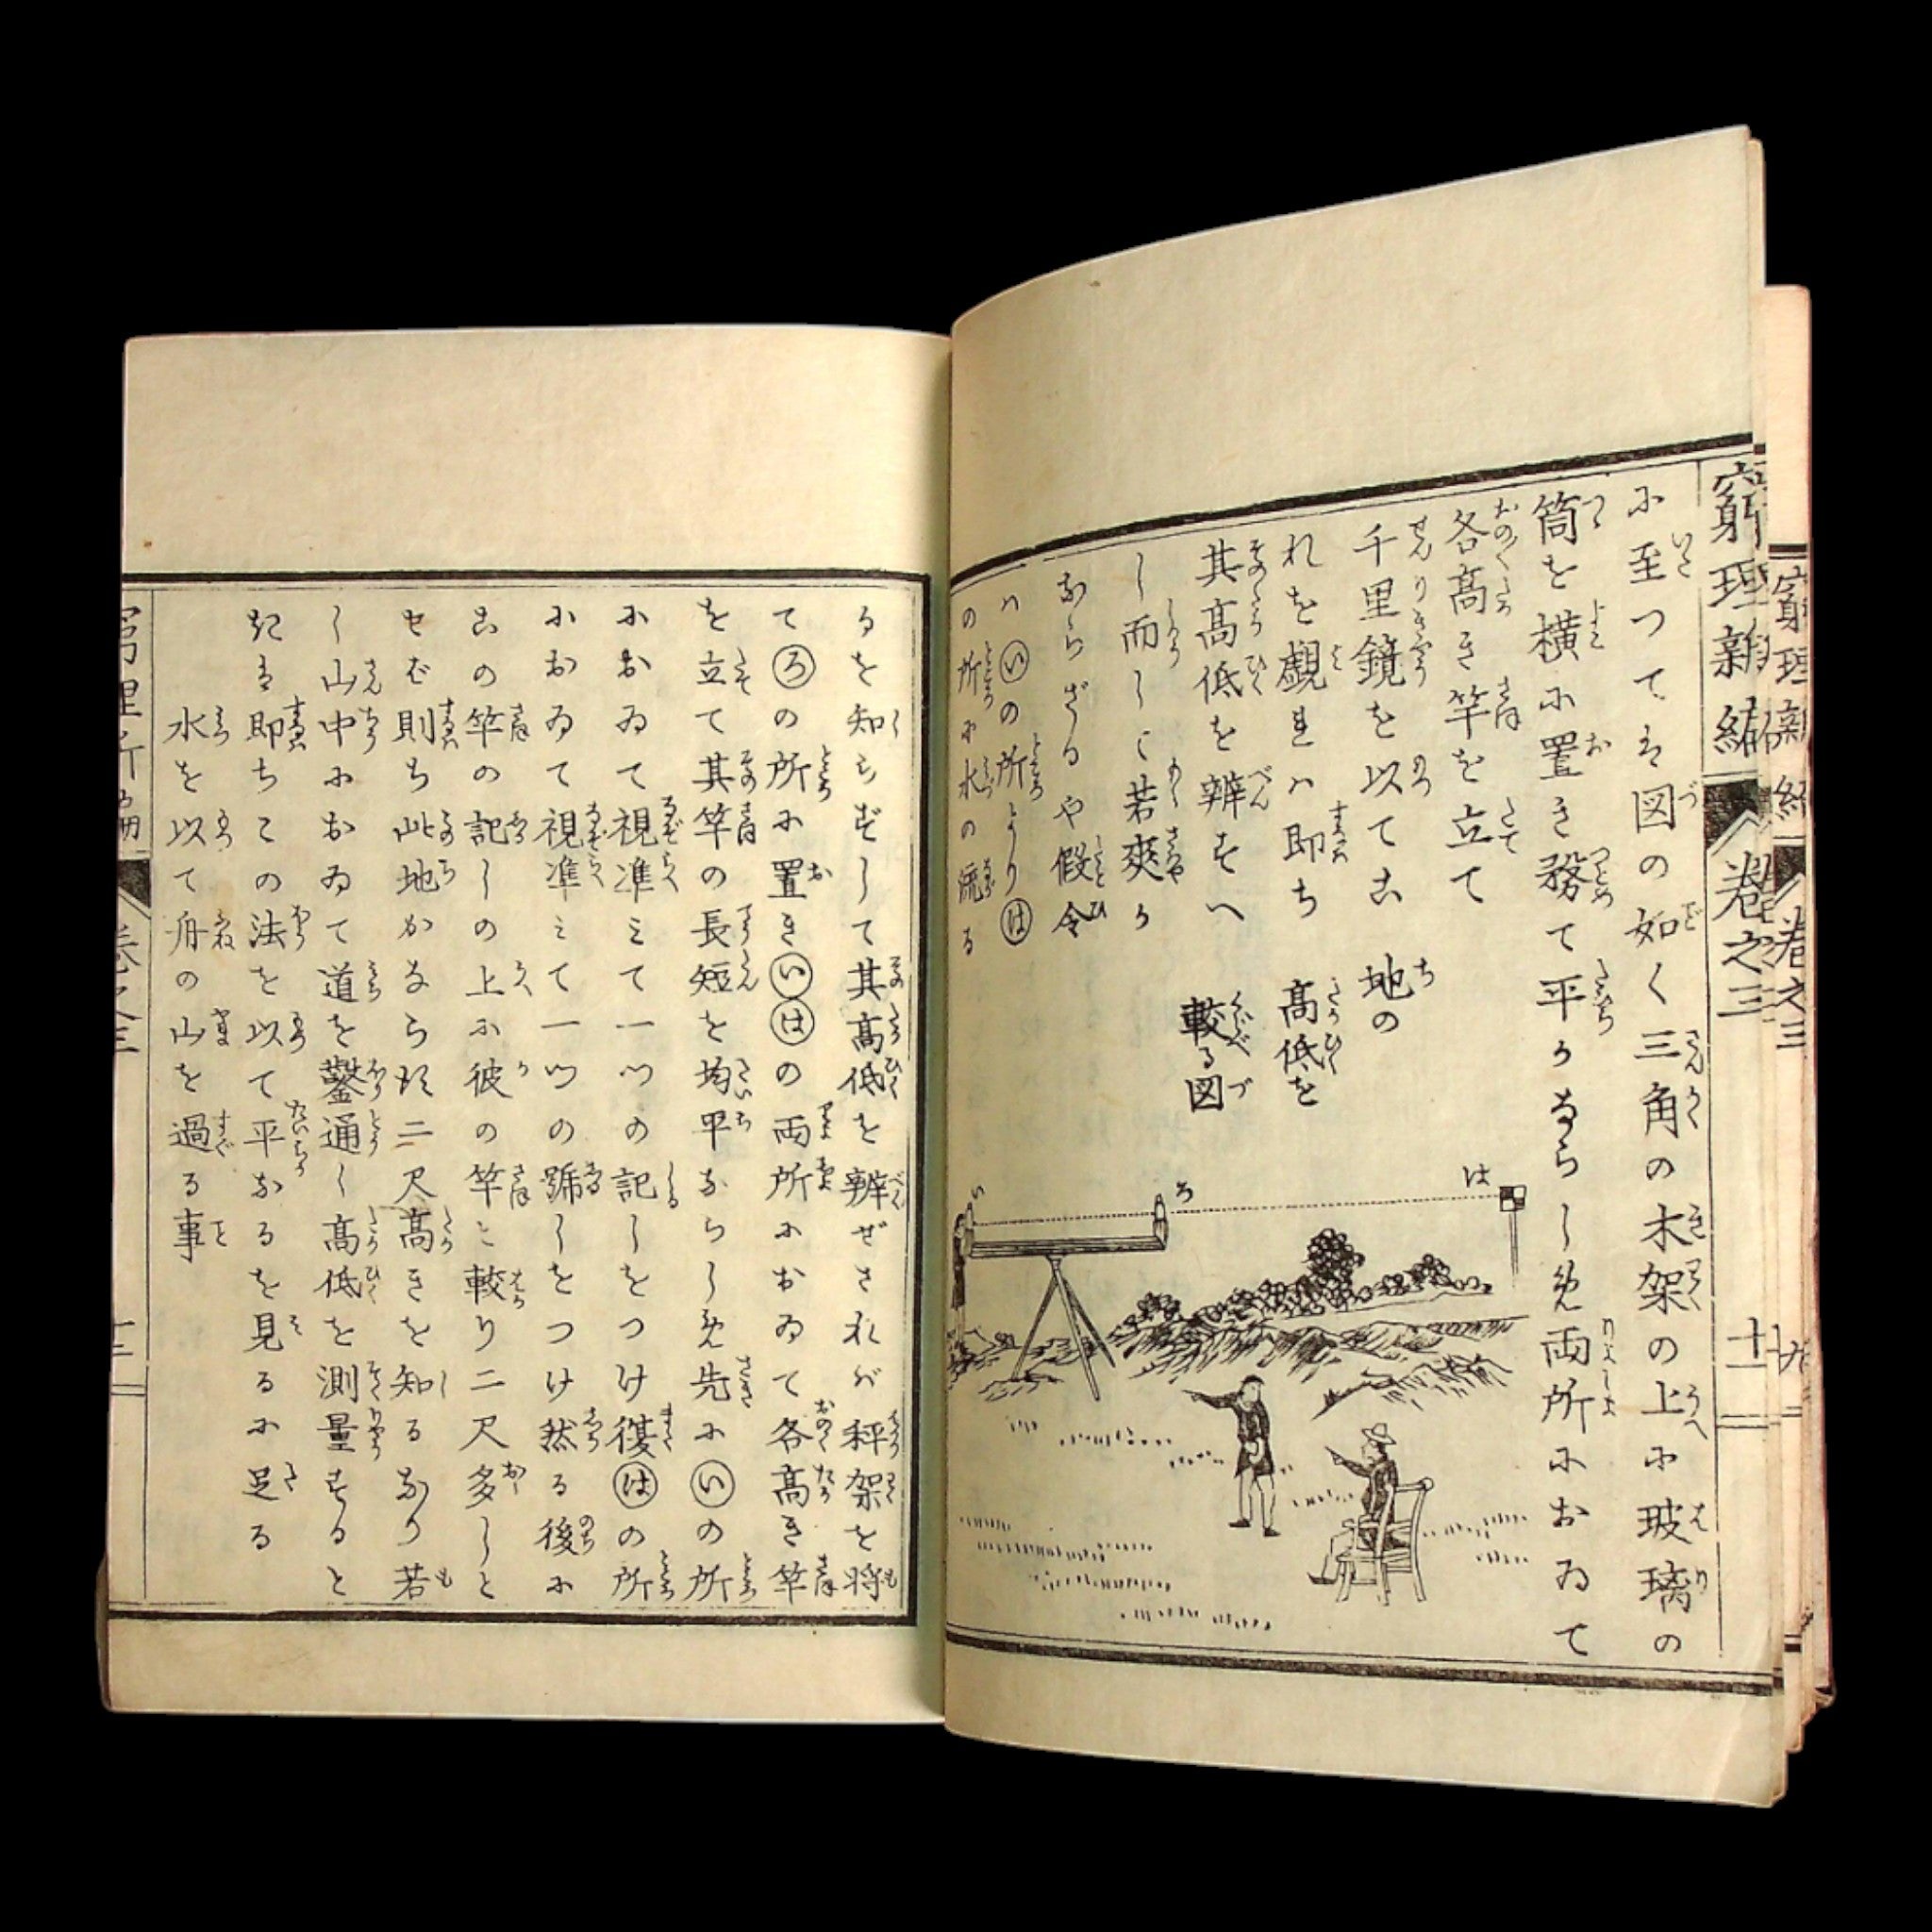 窮理新編
卷之三
十一
に至つては図の如く三角の木架の上に玻璃の
筒を横に置き務て平かならしめ両所においゐて
各高き竿を立て
千里鏡を以てこ
れを覷れハ即ち
其高低を辨ずへ
し而して若爽か
ならざるや假令
ハいの所よりは
の所に水の流る
地の
高低を
較る図
い
ろ
は
るを知らずして其高低を辨ぜされバ秤架を将
てろの所に置きいはの両所におゐて各高き竿
を立て其竿の長短を均平ならしめ先にいの所
におゐて視準ミて一ツの記しをつけ復はの所
におゐて視準ミて一ツの號しをつけ然る後に
この竿の記しの上に彼の竿と較り二尺多しと
せば則ち此地かならす二尺高きを知るなり若
し山中におゐて道を鑿通し高低を測量すると
きは即ちこの法を以て平なるを見るに足る
水を以て舟の山を過る事
窮理新編
卷之三
九